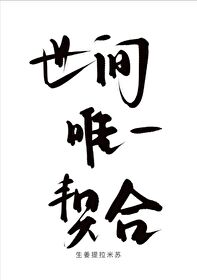 世间
唯一
契合
生姜提拉米苏